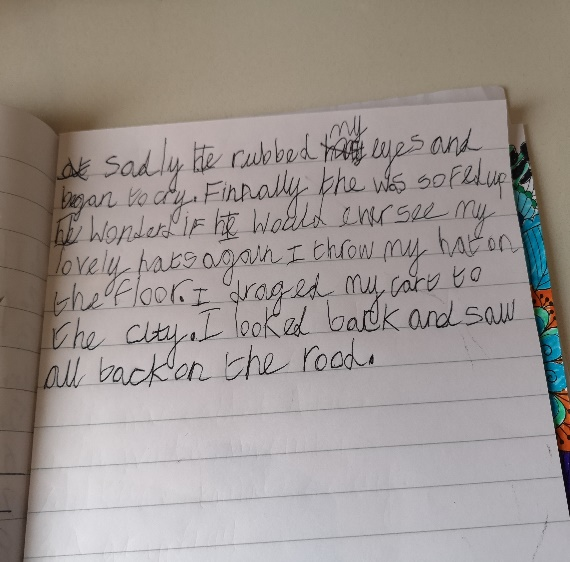 at sadly He rubbed my eyes and
began to cry. Finnally the was so fed up
He Wonderd if he Would ever see my
lovely hats again I throw my hat on
the floor. I draged my cart to
the city. I looked back and saw
all back on the road.